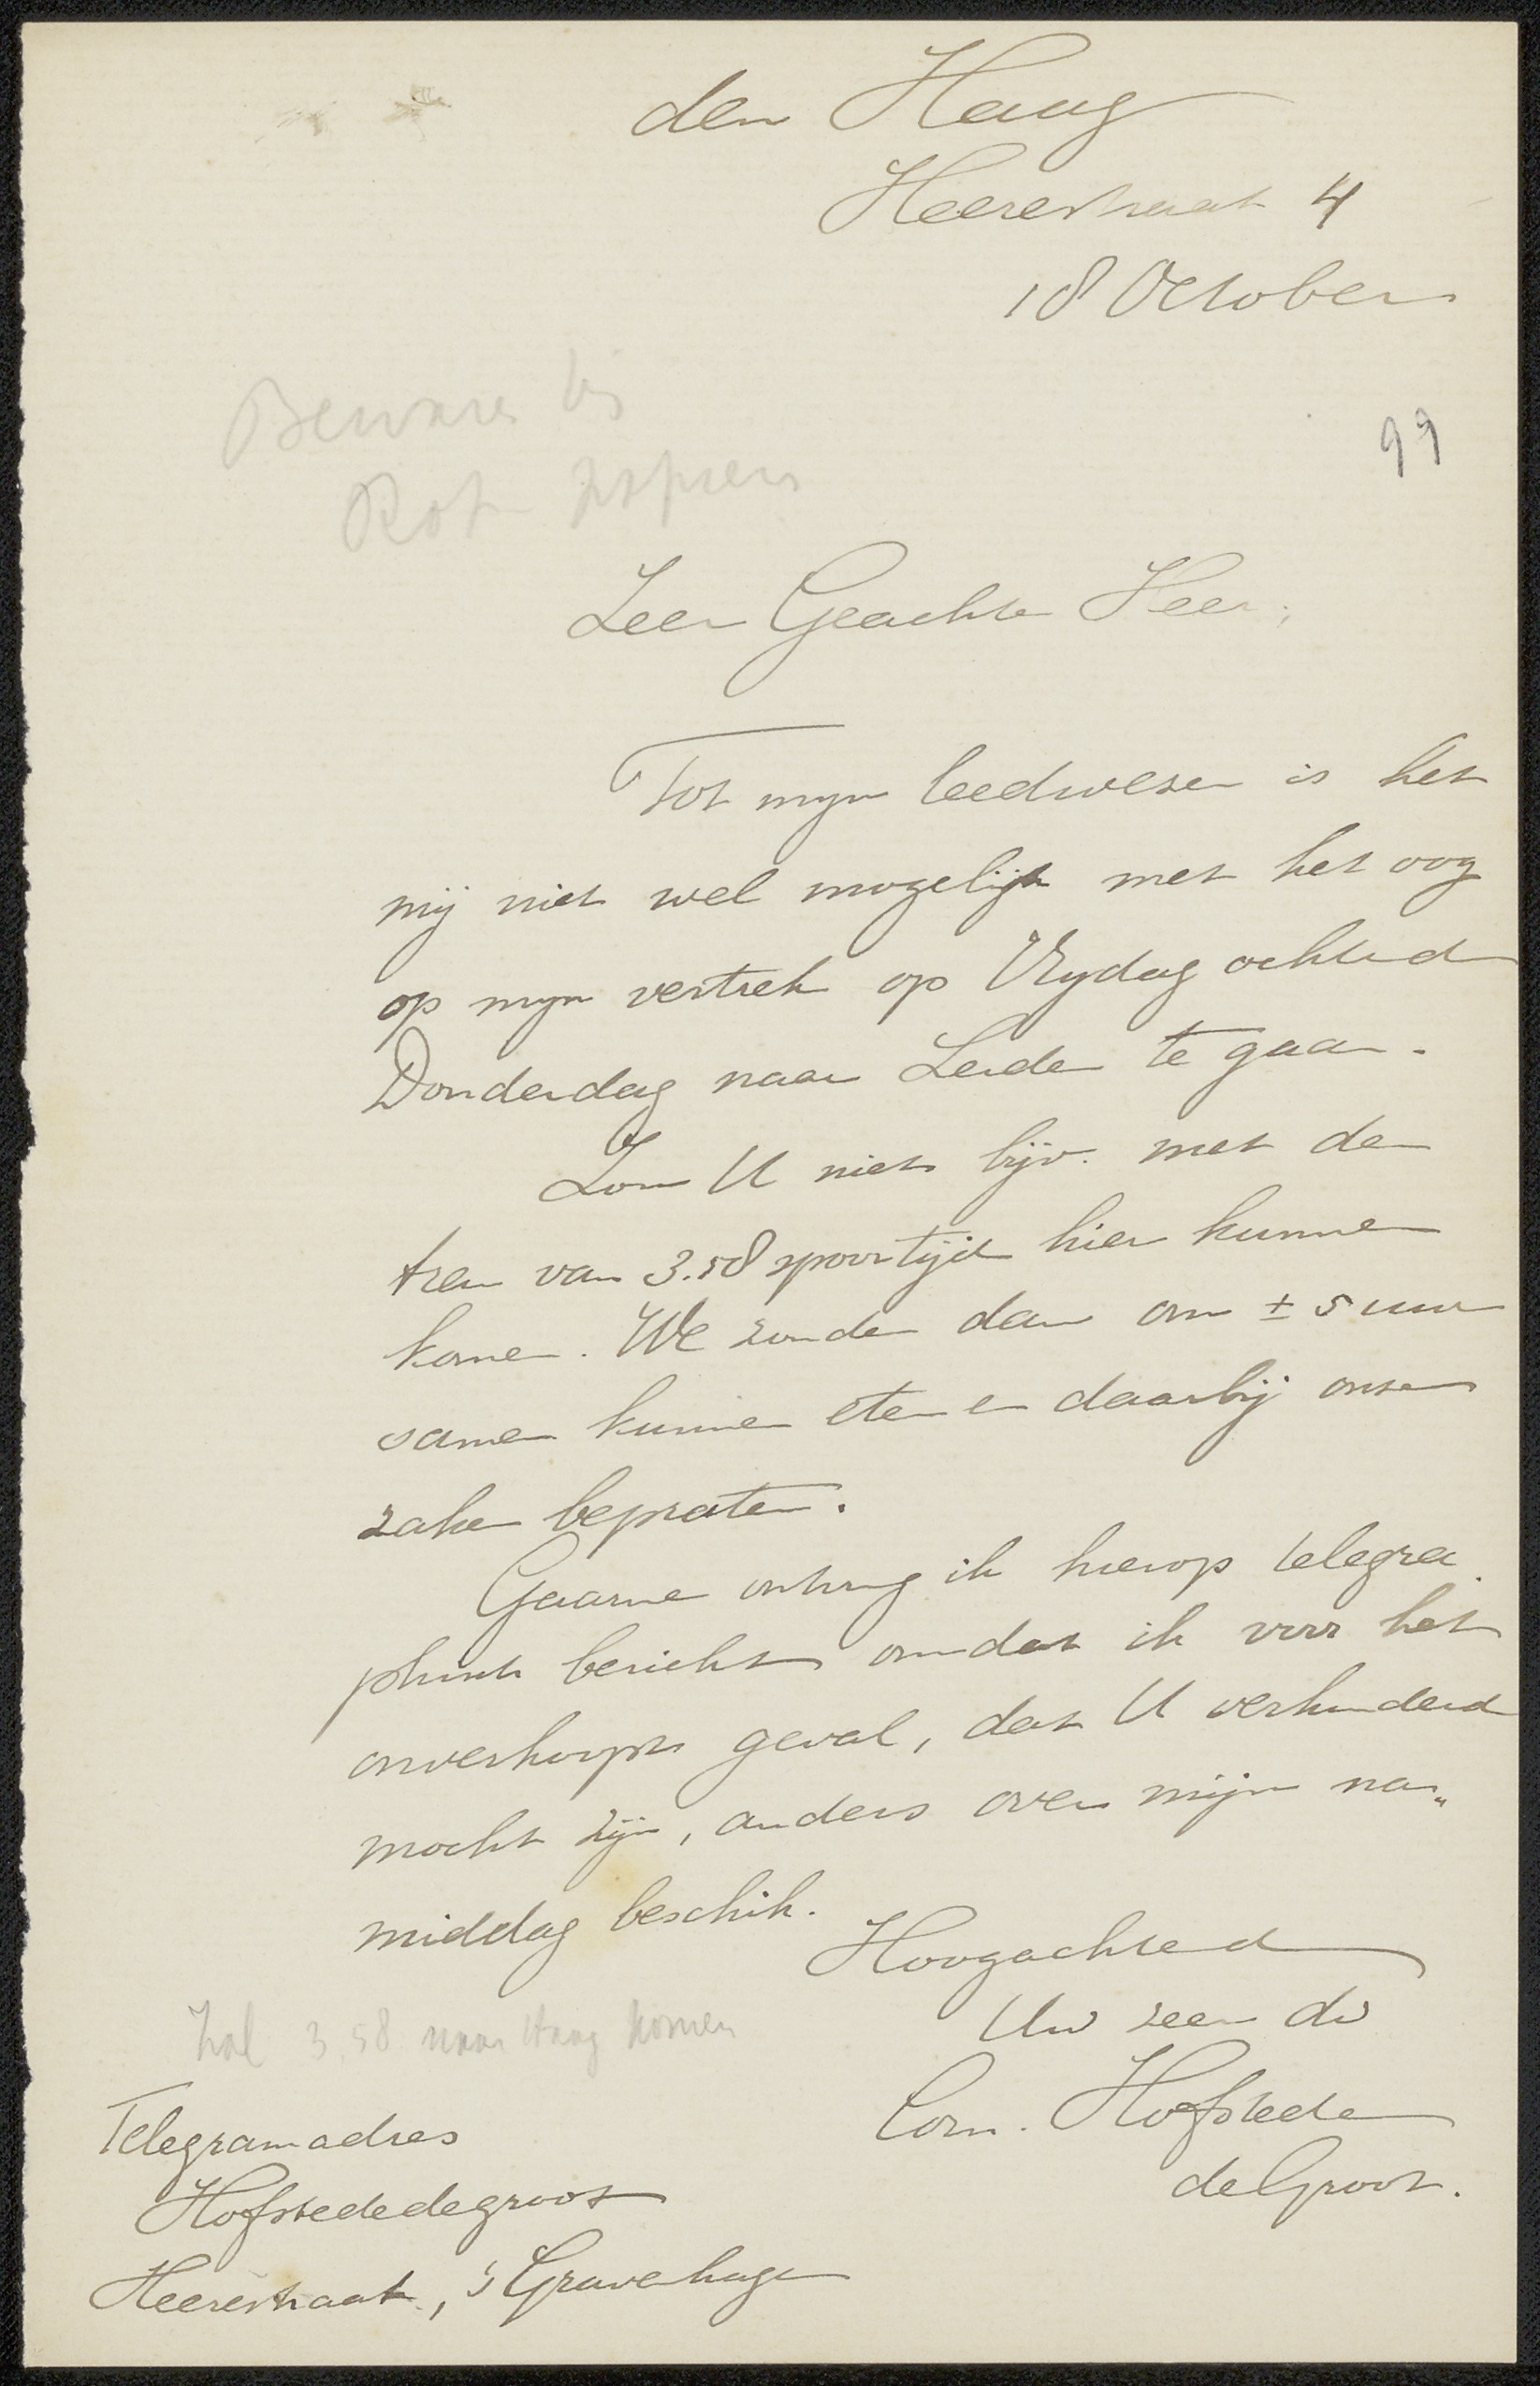 den Haag
Heerestraat 4
18 October
Beware bij
99
Zeer Geachte Heer,
Tot mijn leedwezen is het
mij niet wel mogelijk met het oog
op mijn vertrek op Vrijdag ochtend
Donderdag naar Leiden te gaan.
Zou U niet bijv. met den
trein van 3.58 spoortijd hier kunnen
komen. We zouden dan om ± 5 uur
samen kunnen eten en daarbij onze
zaken bepraten.
Gaarne ontving ik hierop telegra
phisch bericht omdat ik voor het
onverhoopte geval, dat U verhinderd
mocht zijn, anders over mijn na„
middag beschik.
Hoogachtend
Uw zeer dw
Corn. Hofstede
de Groot.
Zal 3.58 naar Haag komen
Telegramadres
Hofstededegroot
Heerestraat, 's Gravenhage